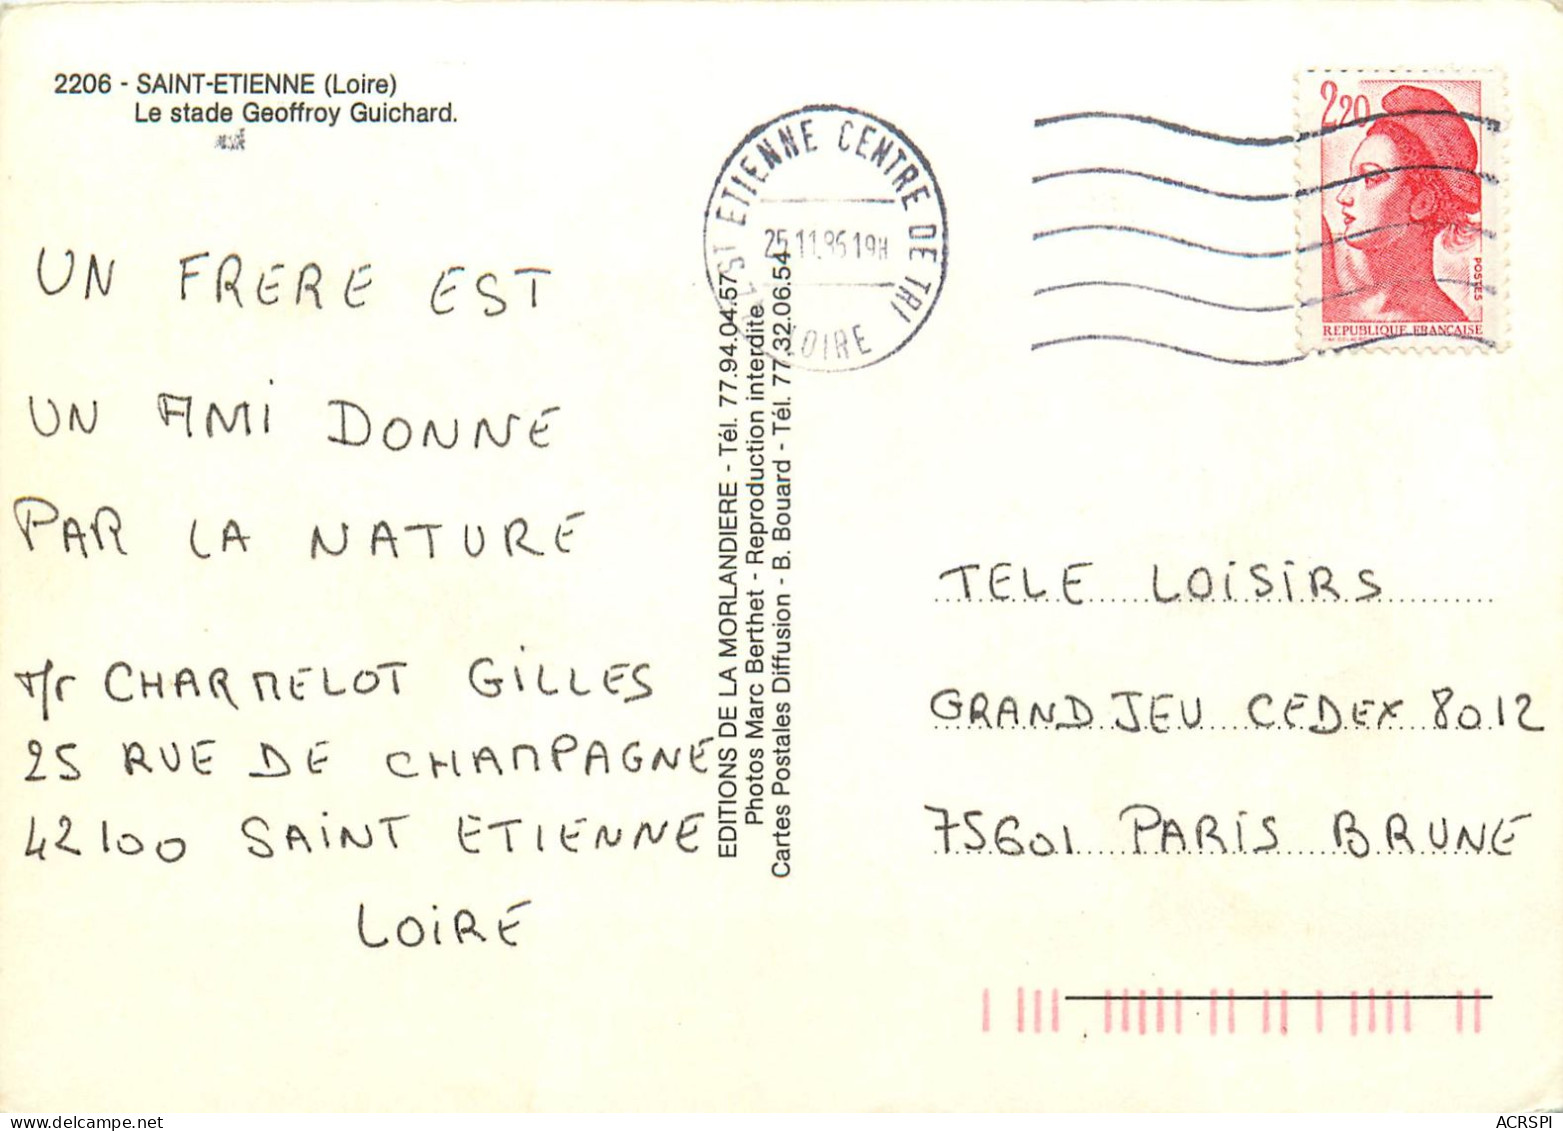 2206 - SAINT-ETIENNE (Loire)
Le stade Geoffroy Guichard.
UN FRERE EST
UN AMI DONNE
PAR LA NATURE
Mr CHARMELOT GILLES
25 RUE DE CHAMPAGNE
42100 SAINT ETIENNE
LOIRE
EDITIONS DE LA MORLANDIERE - Tél. 77.94.04.57
Photos Marc Berthet - Reproduction interdite
Cartes Postales Diffusion - B. Bouard - Tél. 77.32.06.54
ST ETIENNE CENTRE DE TRI
25.11.86 19H
LOIRE
2,20
POSTES
REPUBLIQUE FRANÇAISE
TELE LOISIRS
GRAND JEU CEDEX 8012
75601 PARIS BRUNE
ACRSPI